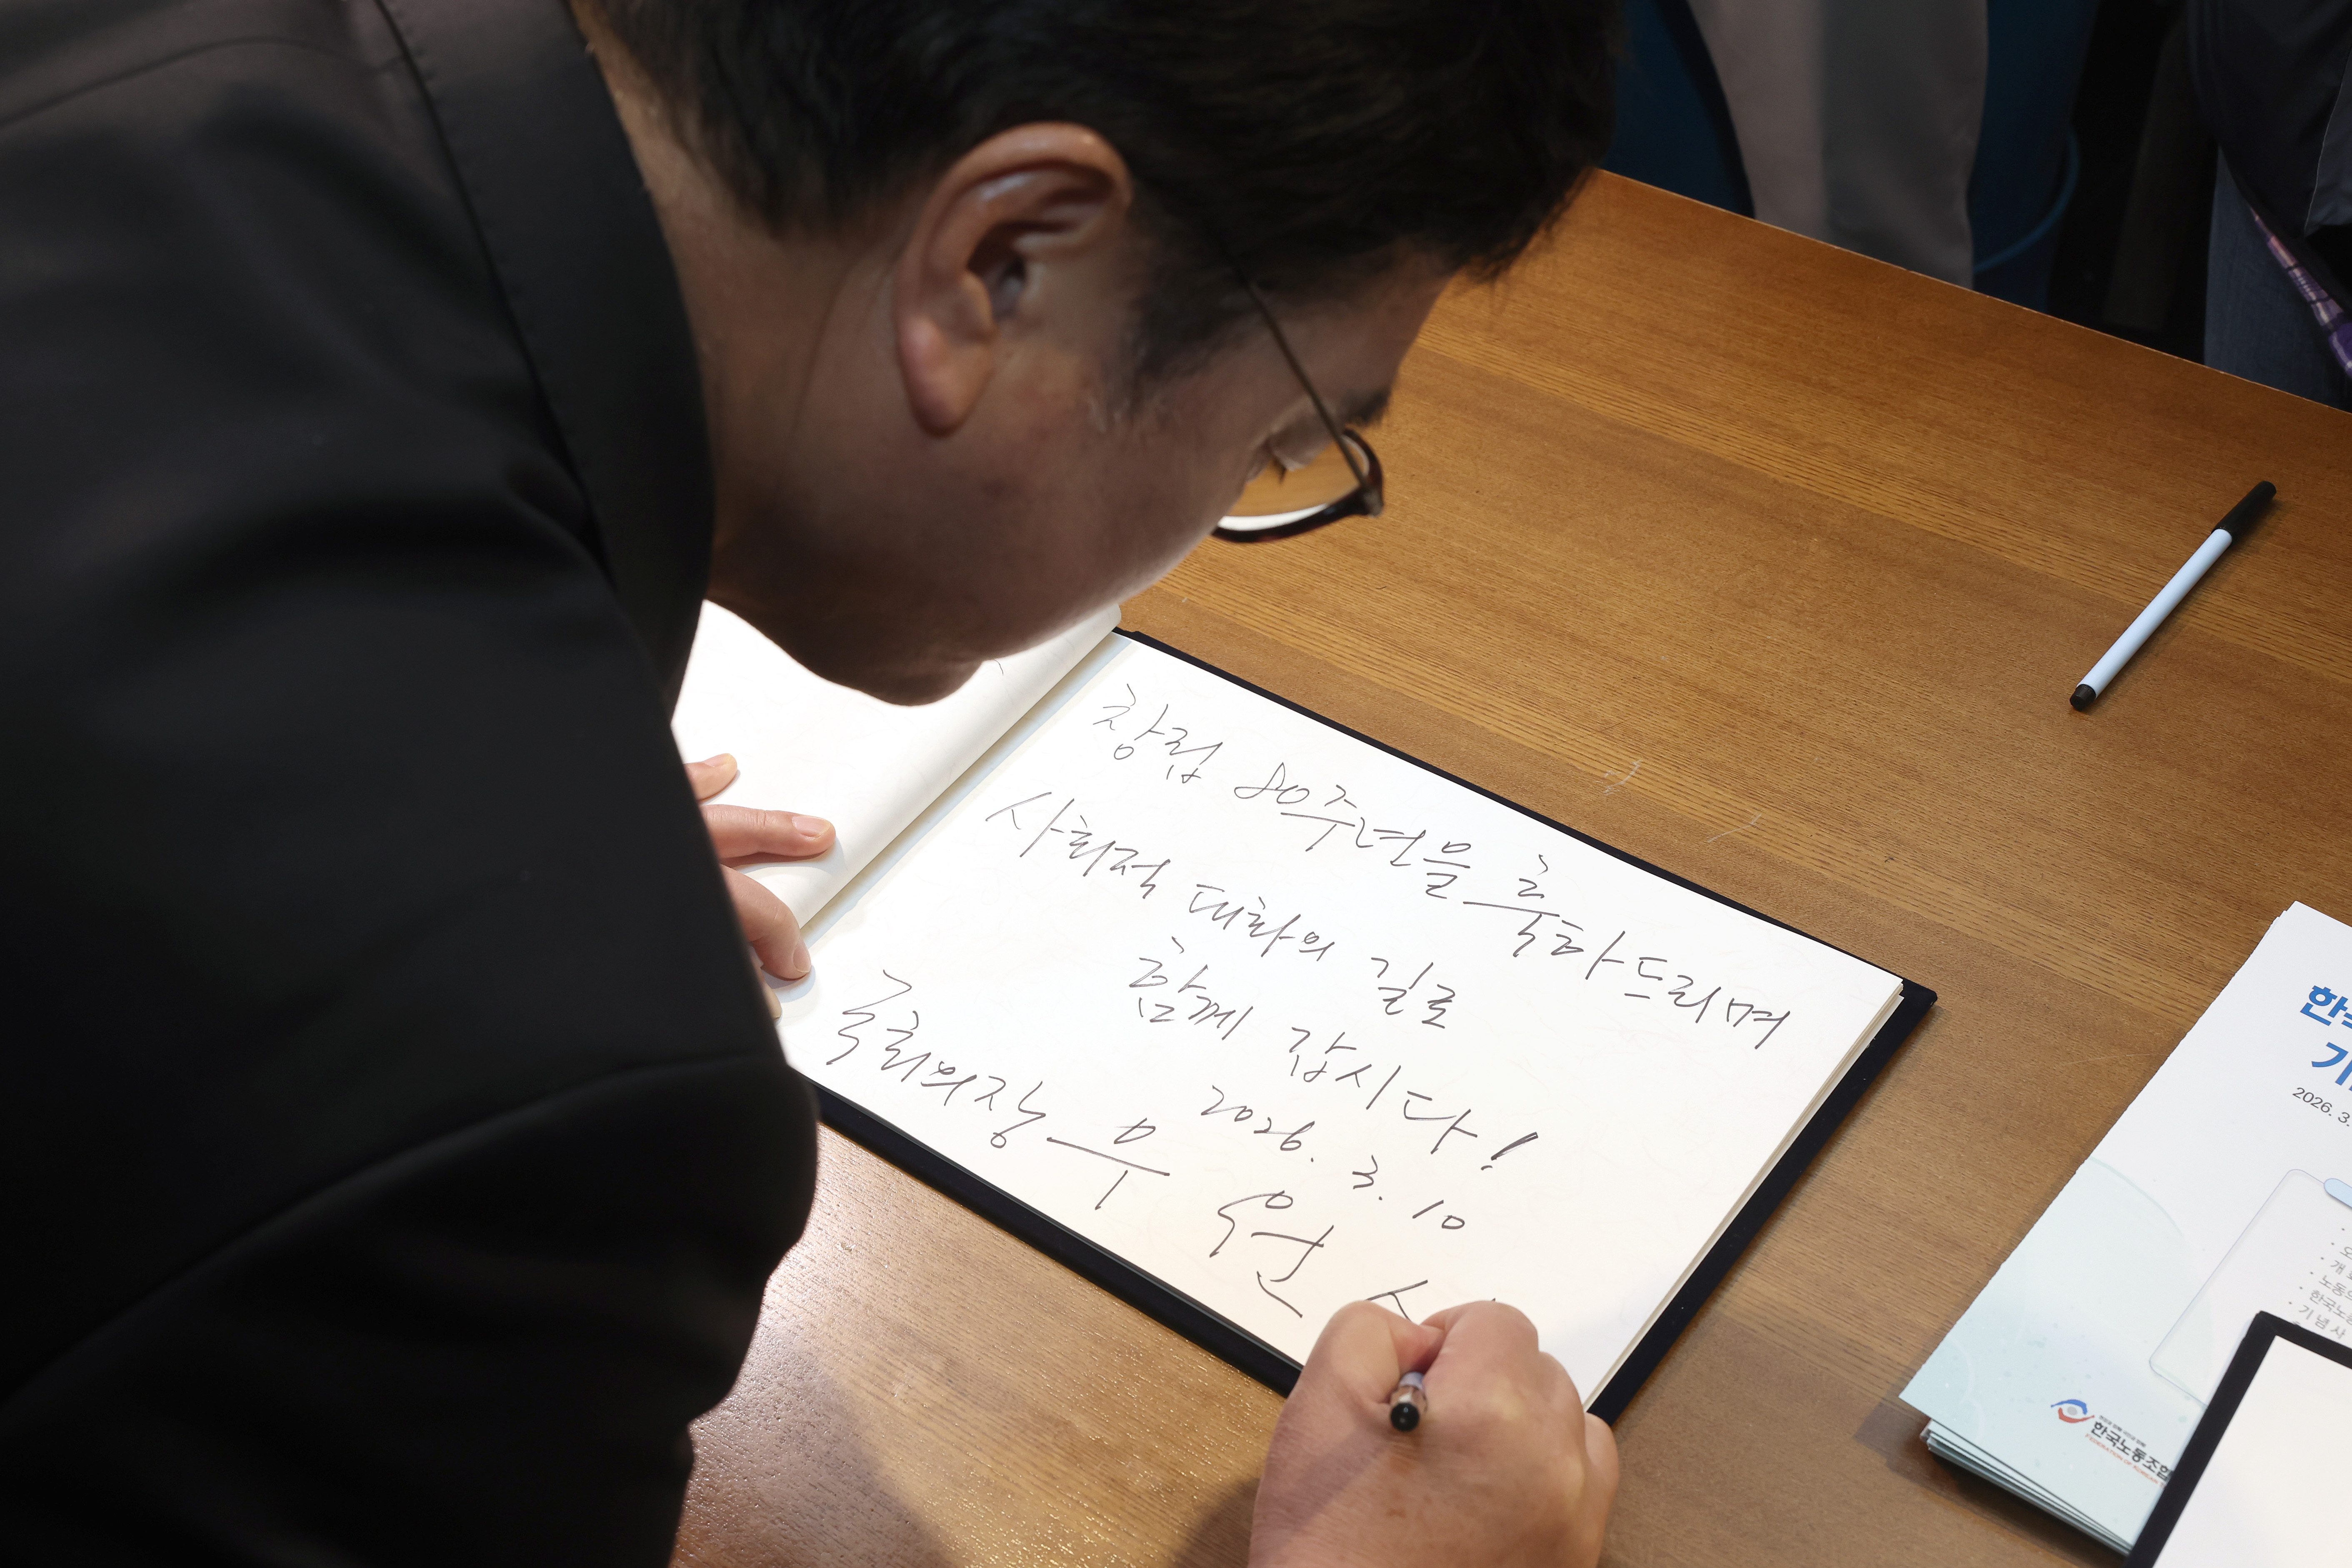 창립 80주년을 축하드리며
사회적 대화의 길로
함께 갑시다!
2026. 3. 10
국회의장 우 원 시
한국
기
2026. 3.
개
노동의
한국노
기념사
한국노동조합
FEDERATION OF KOREAN